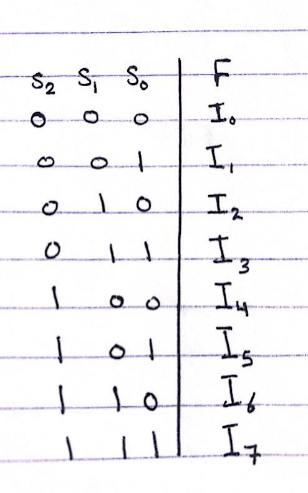 S₂ S₁ S₀ F
0 0 0 I₀
0 0 1 I₁
0 1 0 I₂
0 1 1 I₃
1 0 0 I₄
1 0 1 I₅
1 1 0 I₆
1 1 1 I₇